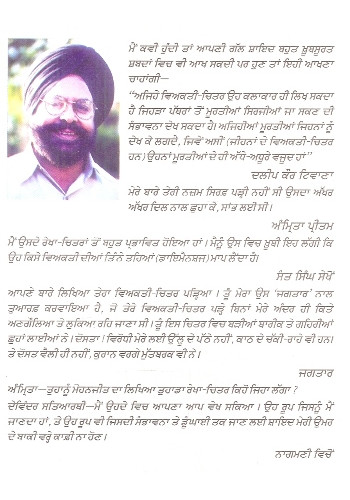 ਮੈਂ ਕਵੀ ਹੁੰਦੀ ਤਾਂ ਆਪਣੀ ਗੱਲ ਸ਼ਾਇਦ ਬਹੁਤ ਖ਼ੂਬਸੂਰਤ
ਸ਼ਬਦਾਂ ਵਿਚ ਵੀ ਆਖ ਸਕਦੀ ਪਰ ਹੁਣ ਤਾਂ ਇਹੀ ਆਖਣਾ
ਚਾਹਾਂਗੀ—
“ਅਜਿਹੇ ਵਿਅਕਤੀ-ਚਿਤਰ ਉਹ ਕਲਾਕਾਰ ਹੀ ਲਿਖ ਸਕਦਾ
ਹੈ ਜਿਹੜਾ ਪੱਥਰਾਂ ਤੋਂ ਮੂਰਤੀਆਂ ਸਿਰਜੀਆਂ ਜਾ ਸਕਣ ਦੀ
ਸੰਭਾਵਨਾ ਦੇਖ ਸਕਦਾ ਹੈ। ਅਜਿਹੀਆਂ ਮੂਰਤੀਆਂ ਜਿਹਨਾਂ ਨੂੰ
ਦੇਖ ਕੇ ਲਗਦੈ, ਜਿਵੇਂ ਅਸੀਂ (ਜੀਹਨਾਂ ਦੇ ਵਿਅਕਤੀ-ਚਿਤਰ
ਹਨ) ਉਹਨਾਂ ਮੂਰਤੀਆਂ ਦੇ ਹੀ ਅੱਧੇ-ਅਧੂਰੇ ਵਜੂਦ ਹਾਂ”
ਦਲੀਪ ਕੌਰ ਟਿਵਾਣਾ
ਮੇਰੇ ਬਾਰੇ ਤੇਰੀ ਨਜ਼ਮ ਸਿਰਫ਼ ਪੜ੍ਹੀ ਨਹੀਂ ਸੀ ਉਸਦਾ ਅੱਖਰ
ਅੱਖਰ ਦਿਲ ਨਾਲ ਛੁਹਾ ਕੇ, ਸਾਂਭ ਲਈ ਸੀ।
ਅੰਮ੍ਰਿਤਾ ਪ੍ਰੀਤਮ
ਮੈਂ ਉਸਦੇ ਰੇਖਾ-ਚਿਤਰਾਂ ਤੋਂ ਬਹੁਤ ਪ੍ਰਭਾਵਿਤ ਹੋਇਆ ਹਾਂ। ਮੈਨੂੰ ਉਸ ਵਿਚ ਖ਼ੂਬੀ ਇਹ ਲੱਗੀ ਕਿ
ਉਹ ਕਿਸੇ ਵਿਅਕਤੀ ਦੀਆਂ ਤਿੰਨੇ ਤਹਿਆਂ (ਡਾਇਮੈਨਸ਼ਜ਼) ਮਾਪ ਲੈਂਦਾ ਹੈ।
ਸੰਤ ਸਿੰਘ ਸੇਖੋਂ
ਆਪਣੇ ਬਾਰੇ ਲਿਖਿਆ ਤੇਰਾ ਵਿਅਕਤੀ-ਚਿਤਰ ਪੜ੍ਹਿਆ। ਤੂੰ ਮੇਰਾ ਉਸ ‘ਜਗਤਾਰ’ ਨਾਲ
ਤੁਆਰਫ਼ ਕਰਵਾਇਆ ਹੈ, ਜੋ ਤੇਰੇ ਵਿਅਕਤੀ-ਚਿਤਰ ਪੜ੍ਹੇ ਬਿਨਾਂ ਮੇਰੇ ਅੰਦਰ ਹੀ ਕਿਤੇ
ਅਣਗੌਲਿਆ ਤੇ ਲੁਕਿਆ ਰਹਿ ਜਾਣਾ ਸੀ। ਤੂੰ ਇਸ ਚਿਤਰ ਵਿਚ ਬੜੀਆਂ ਬਾਰੀਕ ਤੇ ਗਹਿਰੀਆਂ
ਛੁਹਾਂ ਲਾਈਆਂ ਨੇ। ਦੋਸਤਾ! ਵਿਰੋਧੀ ਮੇਰੇ ਲਈ ਉੱਲੂ ਦੇ ਪੱਠੇ ਨਹੀਂ, ਕਾਠ ਦੇ ਚੱਕੀ-ਰਾਹੇ ਵੀ ਹਨ।
ਤੇ ਦੋਸਤ ਵੈਲੀ ਹੀ ਨਹੀਂ, ਕੁਰਾਨ ਵਰਗੇ ਮੁੱਤਬਰਕ ਵੀ ਨੇ।
ਜਗਤਾਰ
ਅੰਮ੍ਰਿਤਾ—ਤੁਹਾਨੂੰ ਮੋਹਨਜੀਤ ਦਾ ਲਿਖਿਆ ਤੁਹਾਡਾ ਰੇਖਾ-ਚਿਤਰ ਕਿਹੋ ਜਿਹਾ ਲੱਗਾ?
ਦੇਵਿੰਦਰ ਸਤਿਆਰਥੀ—ਮੈਂ ਉਹਦੇ ਵਿਚ ਆਪਣਾ ਆਪ ਵੇਖ ਸਕਿਆ। ਉਹ ਰੂਪ ਜਿਸਨੂੰ ਮੈਂ
ਜਾਣਦਾ ਹਾਂ, ਤੇ ਉਹ ਰੂਪ ਵੀ ਜਿਸਦੀ ਸੰਭਾਵਨਾ ਤੇ ਡੂੰਘਾਈ ਤਕ ਜਾਣ ਲਈ ਸ਼ਾਇਦ ਮੇਰੀ ਉਮਰ
ਦੇ ਬਾਕੀ ਵਰ੍ਹੇ ਕਾਫ਼ੀ ਨਾ ਹੋਣ।
ਨਾਗਮਣੀ ਵਿਚੋਂ